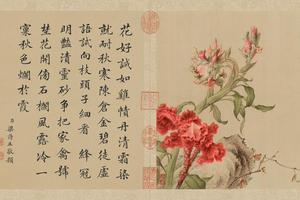 花好誠如雞幘丹清霜染
就耐秋寒陳倉金碧徒虛
語試向枝頭子細看 絳冠
明豔清靈砂爭把家禽號
埜花開傍石欄風露冷一
叢秋色爛於霞
臣梁詩正敬題